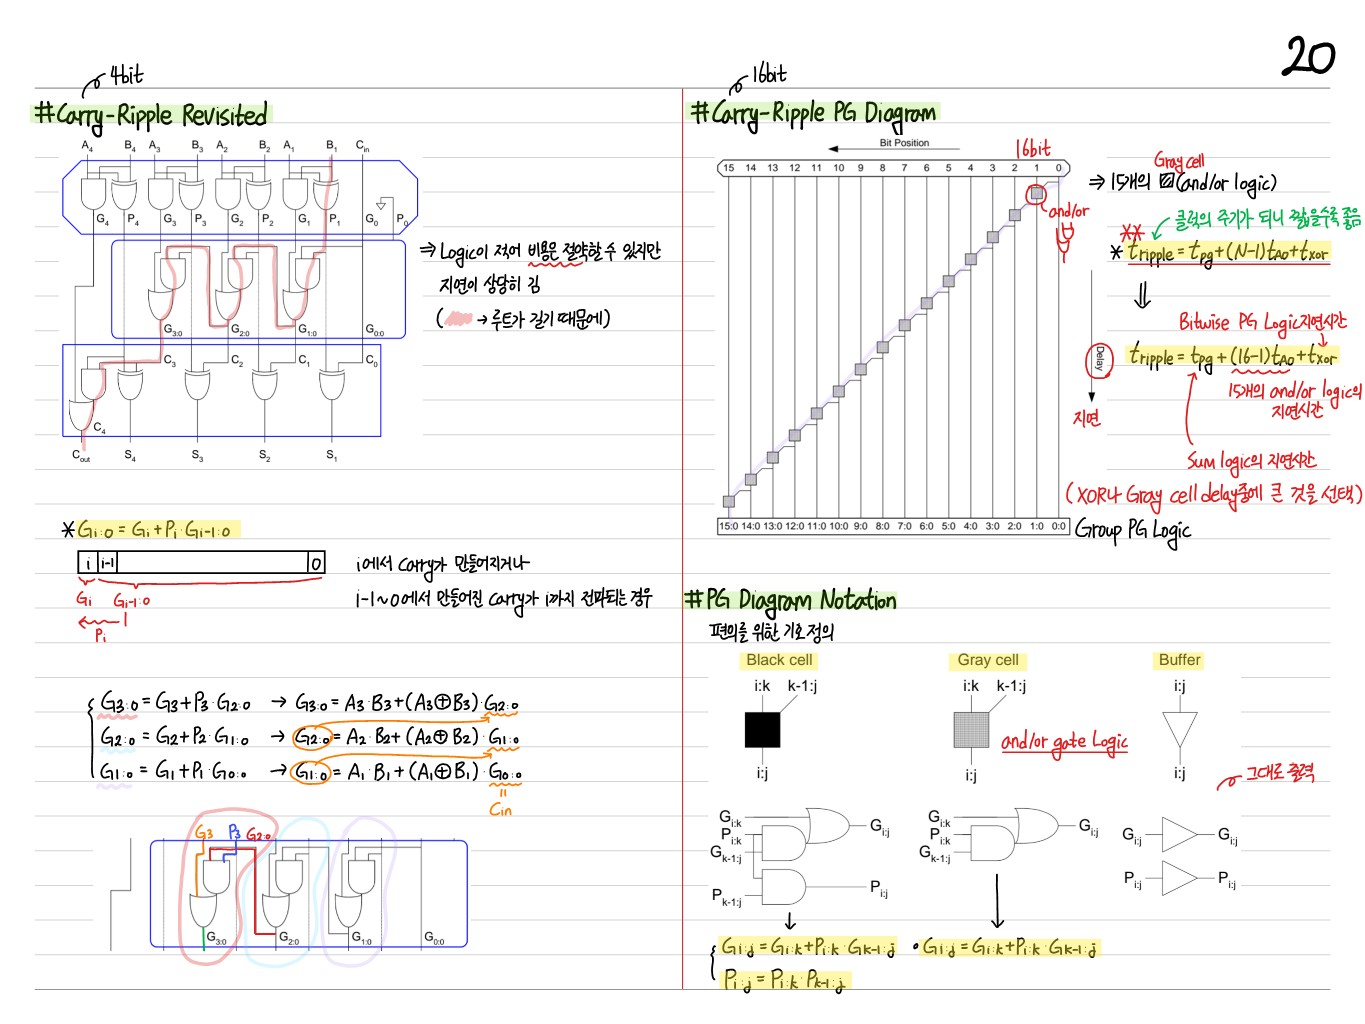 20
4bit
#Carry-Ripple Revisited
A4 B4 A3 B3 A2 B2 A1 B1 Cin
G4 P4 G3 P3 G2 P2 G1 P1 G0 P0
G3:0 G2:0 G1:0 G0:0
C3 C2 C1 C0
C4
Cout S4 S3 S2 S1
⇒ Logic이 적어 비용은 절약할 수 있지만
지연이 상당히 김
( → 루트가 길기 때문에)
*Gi:0 = Gi+Pi·Gi-1:0
i i-1 0
Gi Gi-1:0
Pi
i에서 Carry가 만들어지거나
i-1~0에서 만들어진 Carry가 i까지 전파되는 경우
G3:0 = G3+P3·G2:0 → G3:0 = A3·B3+(A3⊕B3)·G2:0
G2:0 = G2+P2·G1:0 → G2:0 = A2·B2+(A2⊕B2)·G1:0
G1:0 = G1+P1·G0:0 → G1:0 = A1·B1+(A1⊕B1)·G0:0
=
Cin
G3 P3 G2:0
G3:0 G2:0 G1:0 G0:0
16bit
#Carry-Ripple PG Diagram
Bit Position
16bit
15 14 13 12 11 10 9 8 7 6 5 4 3 2 1 0
and/or
Delay
지연
15:0 14:0 13:0 12:0 11:0 10:0 9:0 8:0 7:0 6:0 5:0 4:0 3:0 2:0 1:0 0:0
Group PG Logic
Gray cell
⇒ 15개의 (and/or logic)
클럭의 주기가 되니 짧을수록 좋음
**
* tripple = tpg+(N-1)tAO+tXOR
⇓
Bitwise PG Logic지연시간
tripple = tpg+(16-1)tAO+tXOR
15개의 and/or logic의
지연시간
Sum logic의 지연시간
(XOR나 Gray cell delay중에 큰 것을 선택)
#PG Diagram Notation
편의를 위한 기호 정의
Black cell Gray cell Buffer
i:k k-1:j i:k k-1:j i:j
and/or gate Logic
i:j i:j i:j
그대로 출력
Gi:k
Pi:k
Gk-1:j
Gi:j
Pk-1:j
Pi:j
Gi:k
Pi:k
Gk-1:j
Gi:j
Gi:j Gi:j
Pi:j Pi:j
Gi:j = Gi:k+Pi:k·Gk-1:j
Pi:j = Pi:k·Pk-1:j
• Gi:j = Gi:k+Pi:k·Gk-1:j